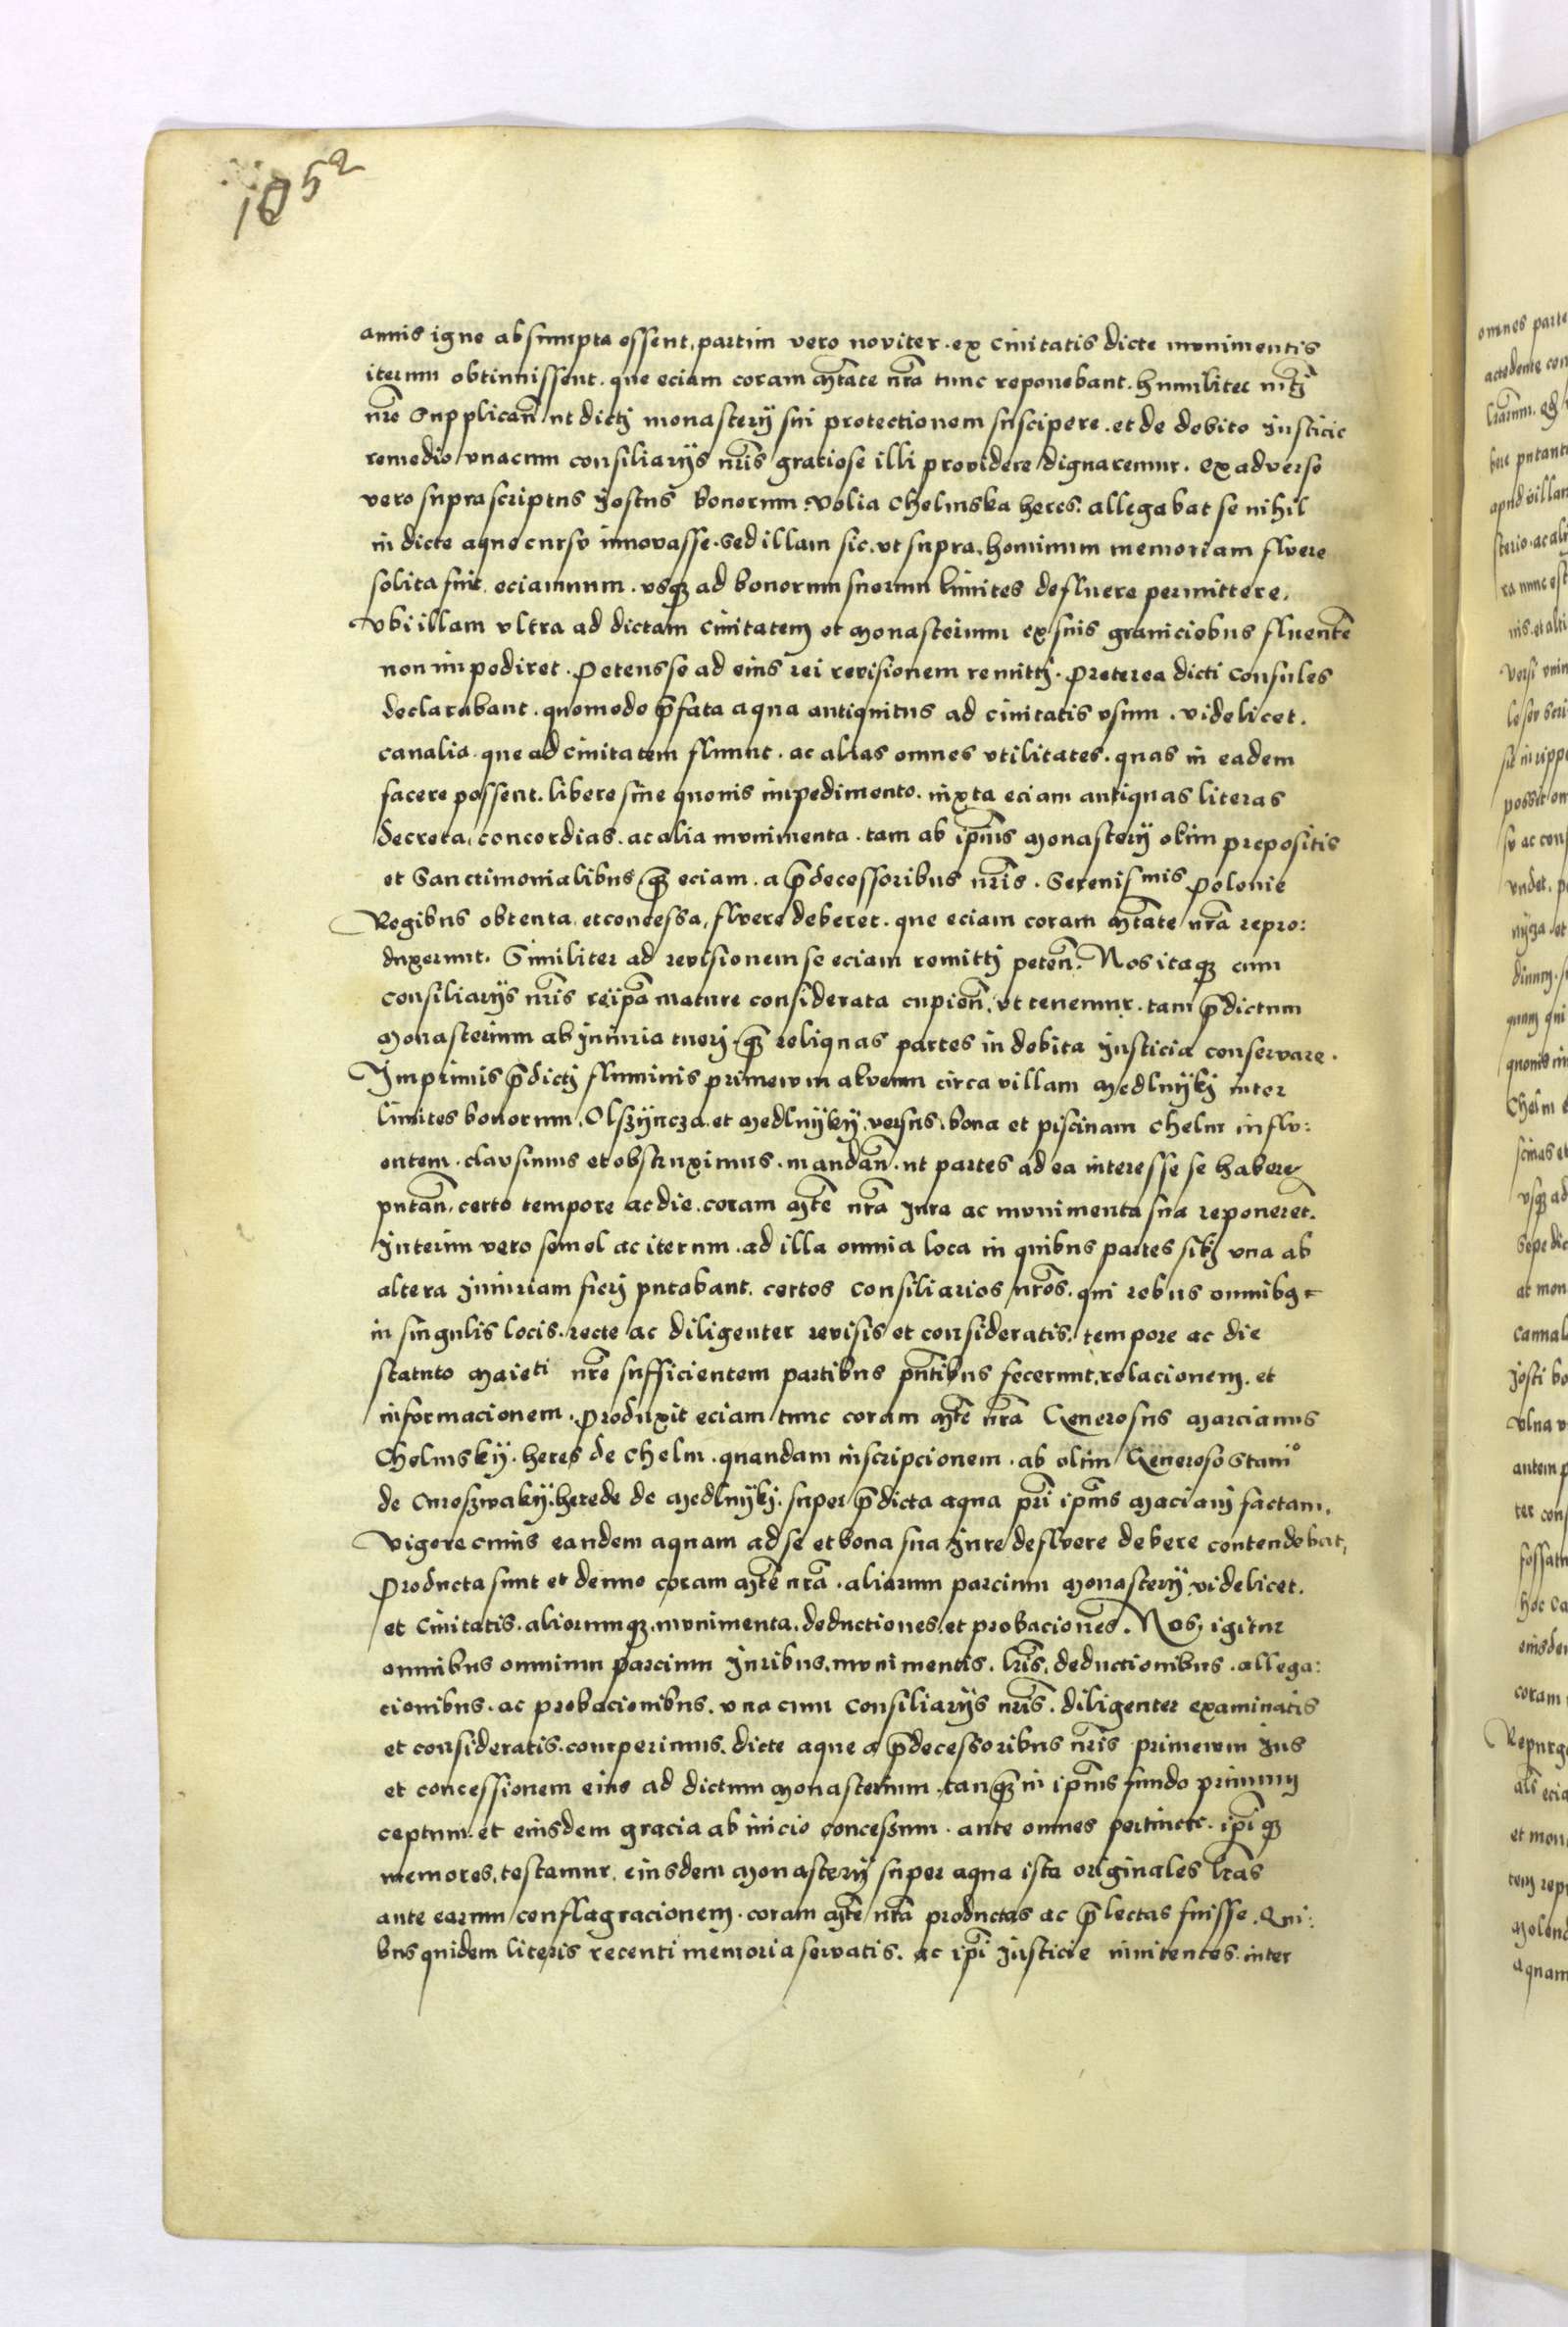 1052
annis igne absumpta essent, partim vero noviter. ex Civitatis dicte monimentis
iterum obtinuissent. que eciam coram Mtate nra tunc reponebant. humiliter mtj
nre Supplican ut dictj monasterij sui protectionem suscipere. et de debito Justicie
remedio unacum consiliarijs nris gratiose illi providere dignaremur. Ex adverso
vero suprascriptus Jostus bonorum Volia Chelmska heres. allegabat se nihil
in dicte aque cursu innovasse. Sed illam sic. ut supra. hominum memoriam fluere
solita fuit. eciamnum. usq3 ad bonorum suorum limites defluere permittere.
Ubi illam ultra ad dictam civitatem et Monasterium ex suis graniciebus fluente
non impediret. Petens se ad eius rei revisionem remittj. Preterea dicti Consules
declarabant. quomodo pfata aqua antiquitus ad civitatis usum. videlicet.
canalia. que ad civitatem fluunt. ac alias omnes utilitates. quas in eadem
facere possent. libere sine quovis impedimento. iuxta eciam antiquas literas
decreta, concordias. ac alia monimenta. tam ab ipius Monasterij olim prepositis
et Sanctimonialibus, q3 eciam. a pdecessoribus nris. Serenismis Polonie
Regibus obtenta. et concessa, fluere deberet. que eciam coram Mtate nra repro:
duxerunt. Similiter ad revisionem se eciam remittj peten. Nos itaq3 cum
consiliarijs nris re ipa mature considerata cupien. ut tenemur. tam pdictum
Monasterium ab Jniuria tuerj. q3 reliquas partes in debita Justicia conservare.
Jmprimis pdictj fluminis primevum alveum circa villam Medlnijkj inter
limites bonorum. Olszijncza. et Medlnijkij. versus. bona et piscinam Chelm influ:
entem. clausimus et obstruximus. mandan. ut partes ad ea interesse se habere
putan. certo tempore ac die. coram Mte nra Jura ac monimenta sua reponeret.
Jnterim vero semel ac iterum. ad illa omnia loca in quibus partes sibj una ab
altera Jniuriam fierj putabant. certos Consiliarios nros. qui rebus omnibq
in singulis locis. recte ac diligenter revisis et consideratis. tempore ac die
statuto Maieti nre sufficientem partibus pntibus fecerunt. relacionem. et
informacionem. Produxit eciam tunc coram Mte nra Generosus Marcianus
Chelmskij. heres de Chelm. quandam inscripcionem. ab olim Generoso Stanio
de herede de Medlnijkj. super pdicta aqua pri ipius Maciani factam.
Vigore cuius eandem aquam ad se et bona sua Jure defluere debere contendebat,
Producta sunt et denuo coram Mte nra. aliarum parcium Monasterij videlicet.
et Civitatis. aliorumq3. monimenta. deductiones. et probaciones. Nos igitur
omnibus omnium parcium Juribus. monimentis. lris. deductionibus. allega:
cionibus. ac probacionibus. una cum Consiliarijs nris. diligenter examinatis
et consideratis. comperimus. dicte aque a pdecessoribus nris primevum Jus
et concessionem eius ad dictum Monasterium. tanq3 in ipius fundo primum
ceptum. et eiusdem gracia ab inicio concessum. ante omnes pertinere. ipi q3
memores, testamur. eiusdem Monasterij super aqua ista originales lras
ante earum conflagracionem. coram Mte nra productas ac plectas fuisse. Qui:
bus quidem literis recenti memoria servatis. ac ipi Justicie innitentes. inter